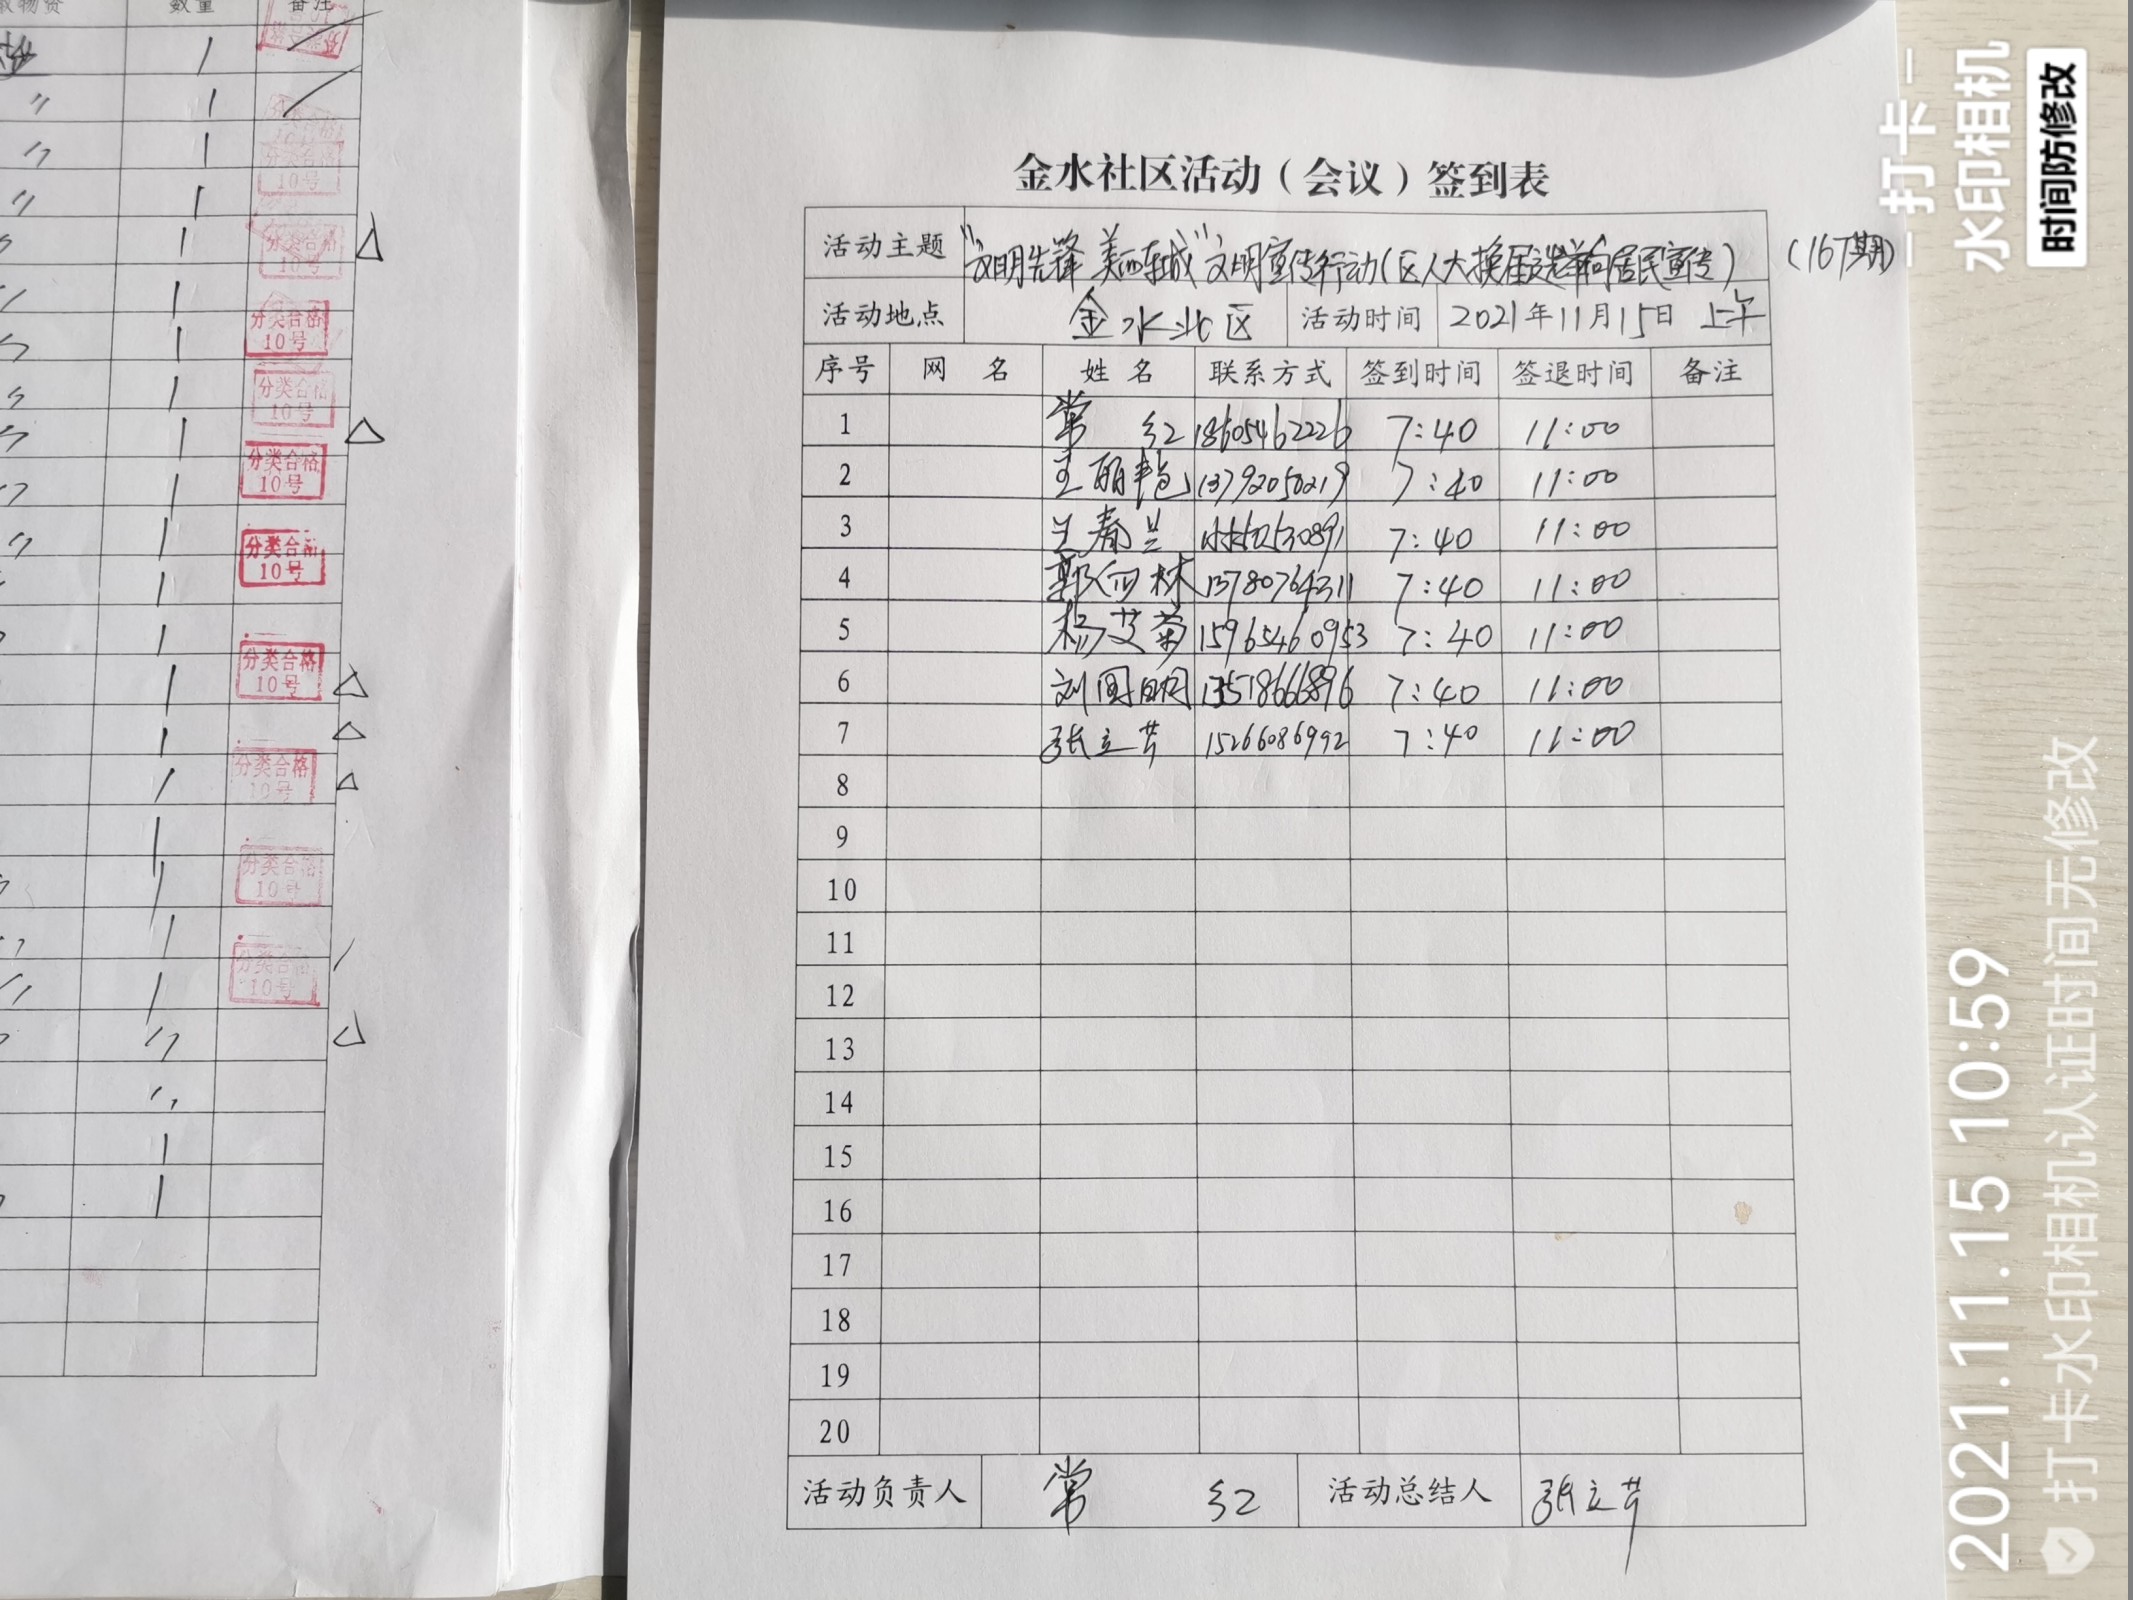 取物资 数量 备注
分类合格
10号
分类合格
分类合格
10号
分类合格
10号
分类合格
10号
分类合格
10号
分类合格
10号
分类合格
10号
分类合格
10号
分类合格
10号
金水社区活动（会议）签到表
活动主题 “文明先锋 美丽东城”文明宣传行动(区人大换届选举向居民宣传) (167期)
活动地点 金水北区 活动时间 2021年11月15日 上午
序号 网名 姓名 联系方式 签到时间 签退时间 备注
1 常红 18605462226 7:40 11:00
2 王丽艳 13792050219 7:40 11:00
3 兰春兰 7:40 11:00
4 郭向林 13780764311 7:40 11:00
5 杨艾菊 15965460953 7:40 11:00
6 刘国明 13518666896 7:40 11:00
7 张立芳 15266086992 7:40 11:00
8
9
10
11
12
13
14
15
16
17
18
19
20
活动负责人 常红 活动总结人 张立芳
打卡
水印相机
时间防修改
2021.11.15 10:59
打卡水印相机认证时间无修改